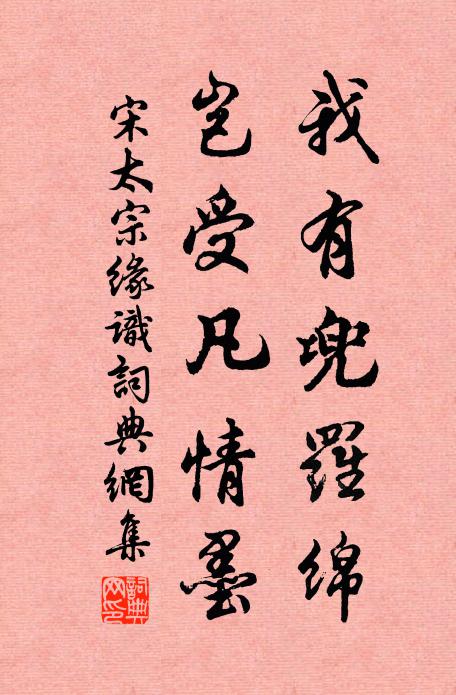 我有兜羅綿
豈受凡情墨
宋太宗緣識詞典網集
詞典網印